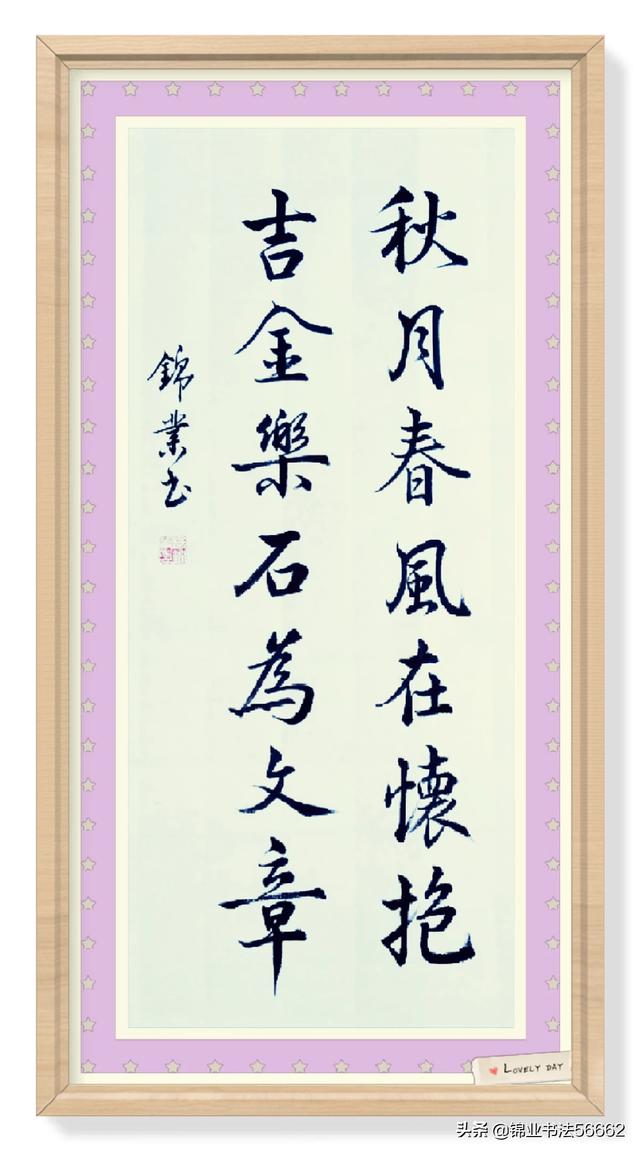 秋月春風在懷抱
吉金樂石為文章
錦業书
LOVELY DAY
头条 @锦业书法56662